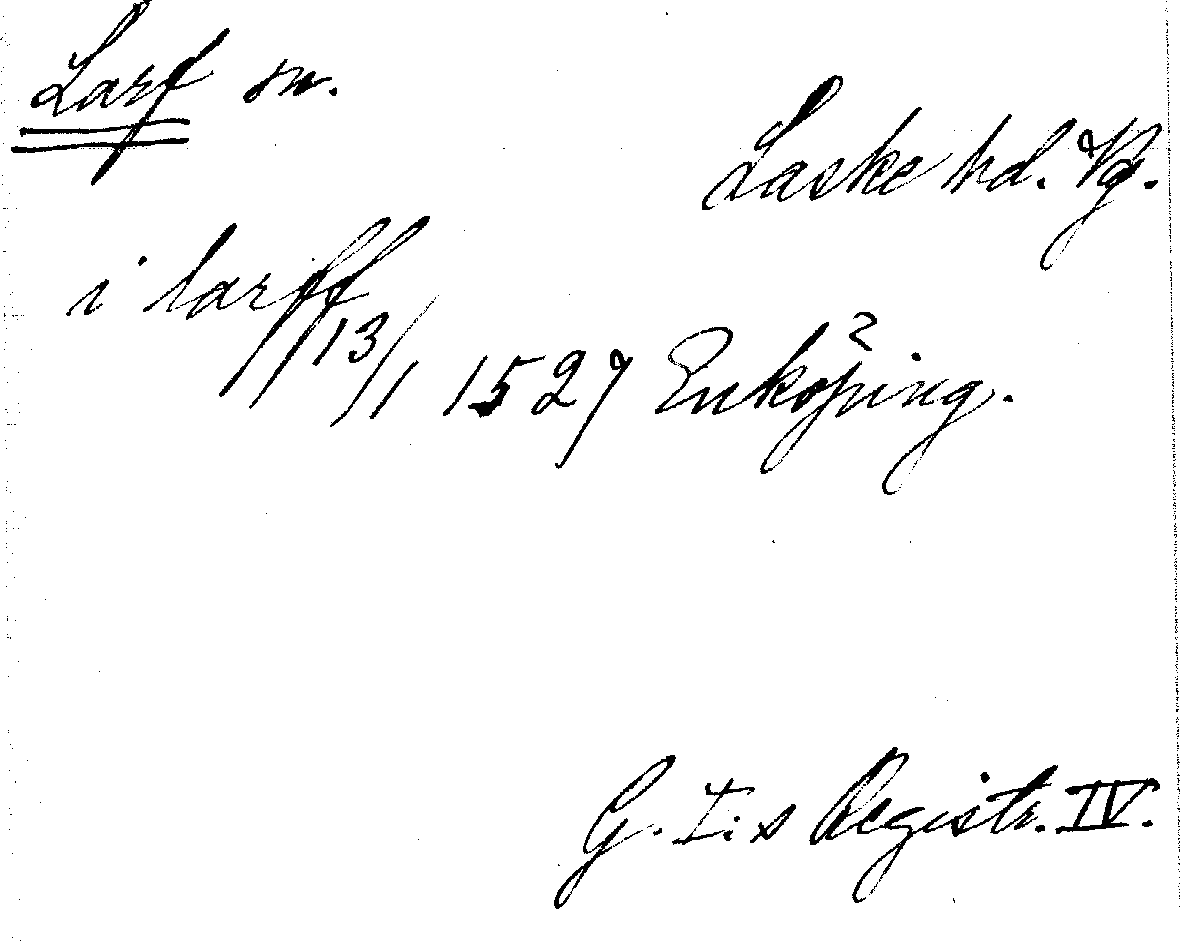 Larf sn.
Laske hd. Vg.
i larff
13/1 1527 Enköping.
G. I:s Registr. IV.